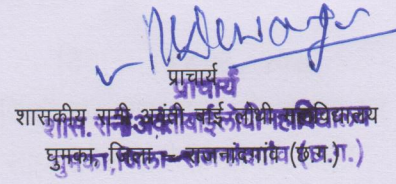 प्राचार्य
प्राचार्य
शासकीय रानी अवंती बाई लोधी महाविद्यालय
शास. रानी अवंतीबाई लोधी महाविद्यालय
घुमका, जिला – राजनांदगांव (छ.ग.)
घुमका, जिला-राजनांदगांव (छ.ग.)